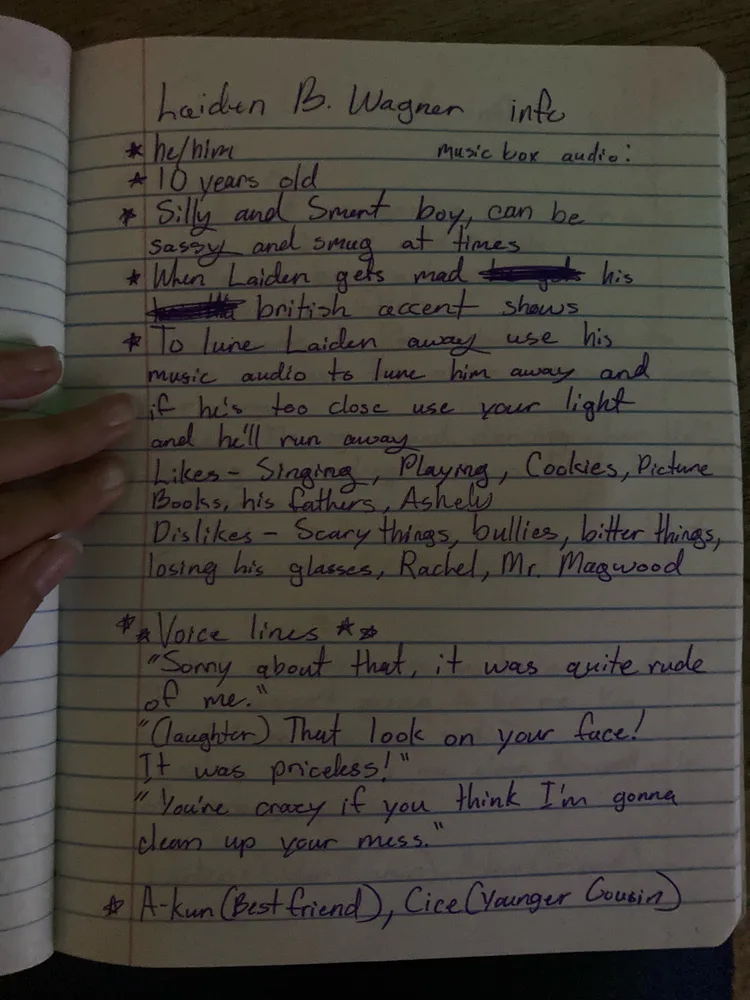 Laiden B. Wagner info
* he/him music box audio:
* 10 years old
* Silly and Smart boy, can be
sassy and smug at times
* When Laiden gets mad his
british accent shows
* To lure Laiden away use his
music audio to lure him away and
if he's too close use your light
and he'll run away
Likes - Singing, Playing, Cookies, Picture
Books, his fathers, Ashely
Dislikes - Scary things, bullies, bitter things,
losing his glasses, Rachel, Mr. Magwood
** Voice lines **
"Sorry about that, it was quite rude
of me."
"(laughter) That look on your face!
It was priceless!"
"You're crazy if you think I'm gonna
clean up your mess."
* A-kun (Best friend), Cice (Younger Cousin)